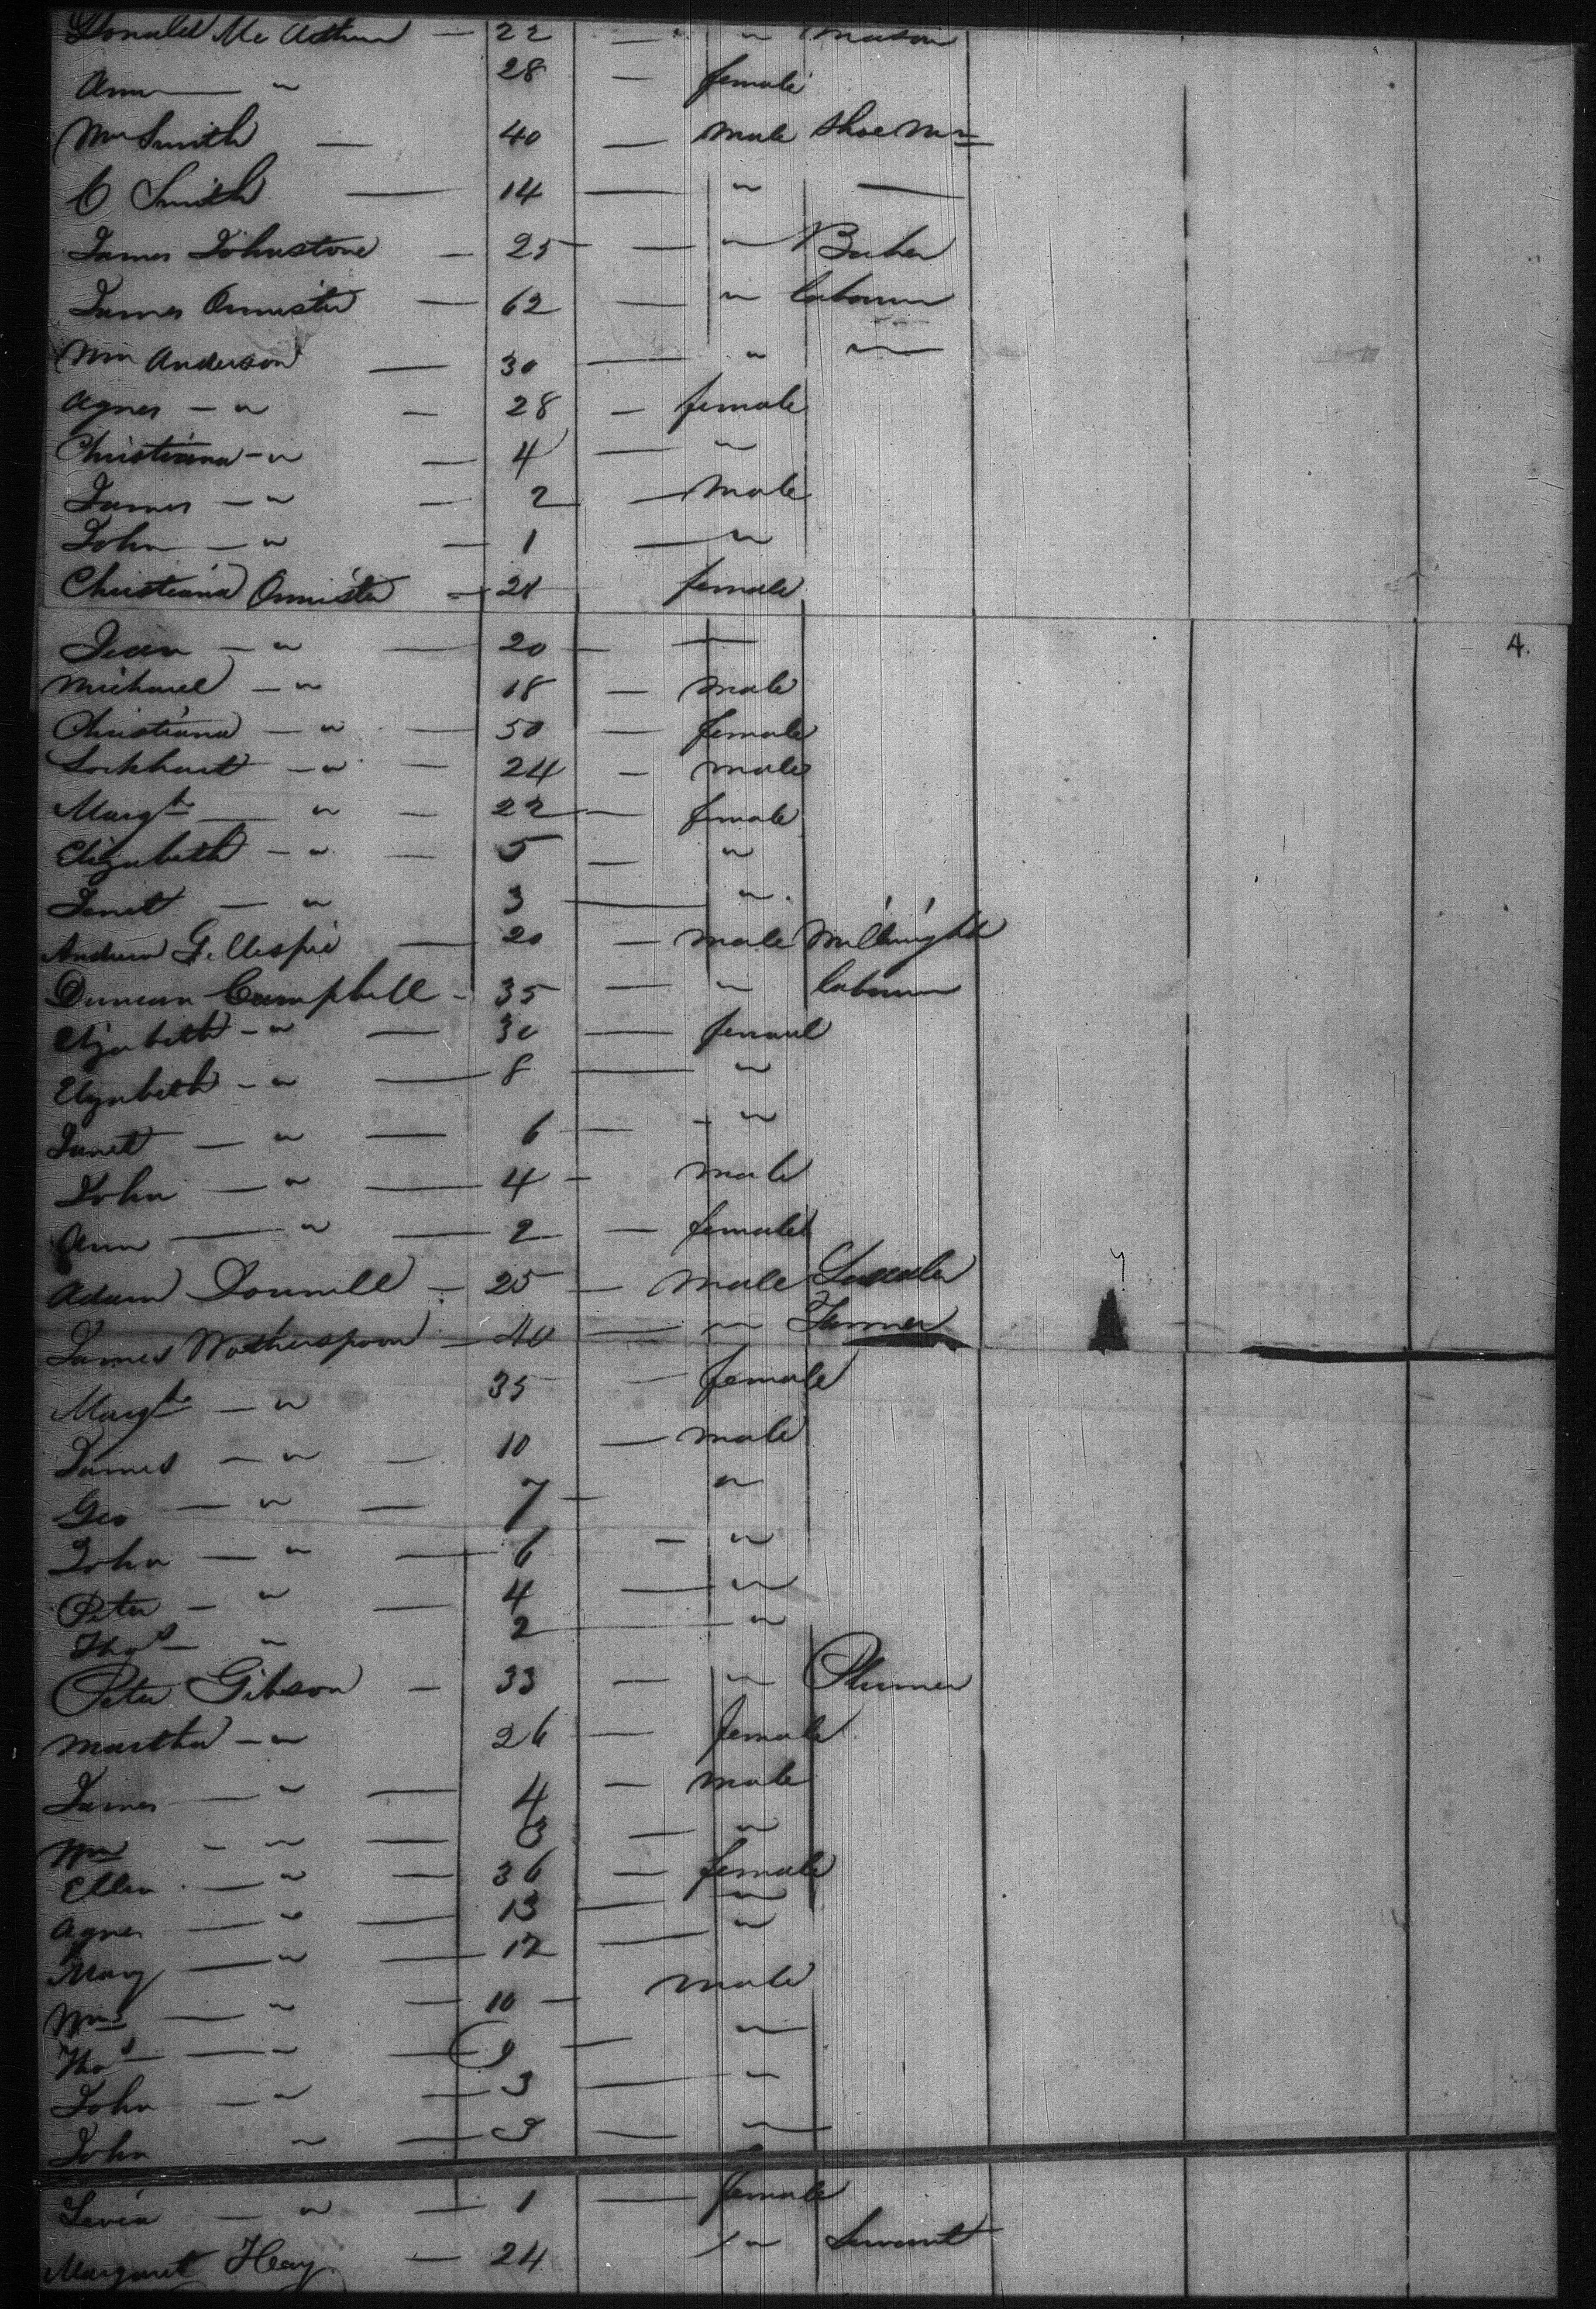 Donald Mc Arthur — 22 — " mason
Ann — " 28 — female
Wm Smith — 40 — male Shoe Mr
C Smith — 14 — " —
James Johnstone — 25 — " Baker
James Ormister — 62 — " labourer
Wm Anderson — 30 — " "
Agnes — " — 28 — female
Christiana — " — 4 — "
James — " — 2 — male
John — " — 1 — "
Christiana Ormister — 21 female
Jean — " — 20 — —
4.
Michael — " 18 — male
Christiana — " — 50 — female
Lockhart — " — 24 — male
Margt — " — 22 — female
Elizabeth — " — 5 — "
Janet — " 3 — "
Andrew Gillespie — 20 — male Millwright
Duncan Campbell — 35 — " labourer
Elizabeth — " — 30 — femaul
Elizabeth — " — 8 — "
Janet — " — 6 — "
John — " — 4 — male
Ann — " — 2 — female
Adam — 25 — male
James Wotherspoon — 40 — " Farmer
Margt — " 35 — female
James — " — 10 — male
Geo — " — 7 — "
John — " — 6 — "
Peter — " — 4 — "
Thos — " 2 — "
Peter Gibson — 33 — " Plumer
Martha — " 26 — female
James — " — 4 — male
Wm — " — 3 — "
Ellen — " — 36 — female
Agnes — " — 13 — "
Mary — " — 12 — "
Wm — " — 10 — male
Thos — " — 9 — "
John — " — 3 — "
John " — 3 — "
— " — 1 — female
Margaret Heay — 24 " Servant